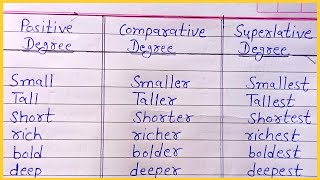 Positive Comparative Superlative
Degree Degree Degree
Small Smaller Smallest
Tall Taller Tallest
Short Shorter Shortest
rich richer richest
bold bolder boldest
deep deeper deepest